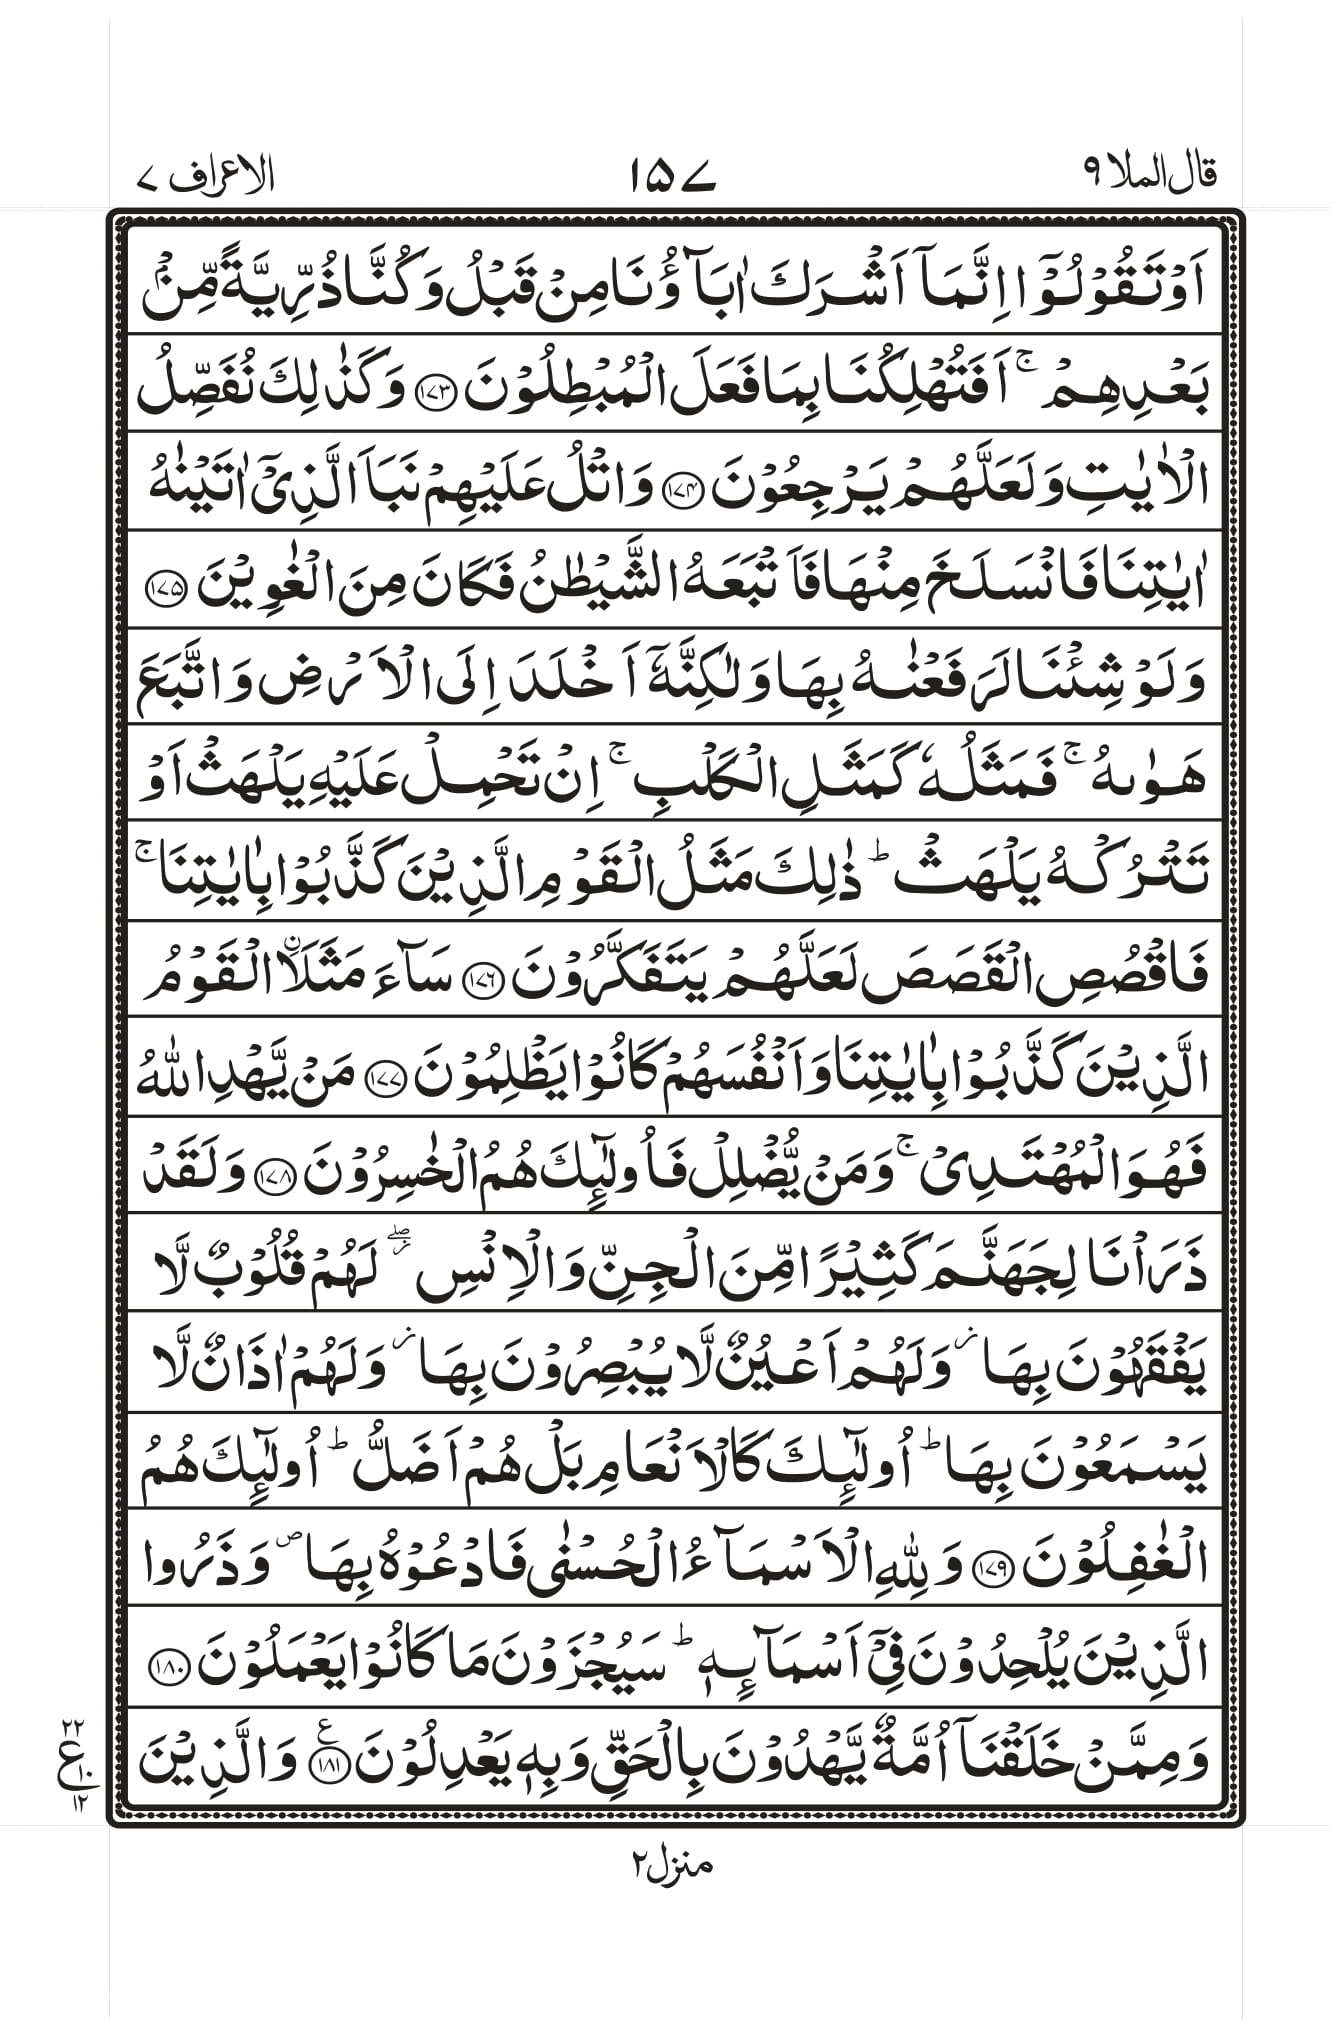 قال الملا ٩ ١٥٧ الاعراف ٧
اَوۡ تَقُوۡلُوۡۤا اِنَّمَاۤ اَشۡرَكَ اٰبَآؤُنَا مِنۡ قَبۡلُ وَكُنَّا ذُرِّيَّةً مِّنۡۢ
بَعۡدِهِمۡ ۚ اَفَتُهۡلِكُنَا بِمَا فَعَلَ الۡمُبۡطِلُوۡنَ ﴿۱۷۳﴾ وَكَذٰلِكَ نُفَصِّلُ
الۡاٰيٰتِ وَلَعَلَّهُمۡ يَرۡجِعُوۡنَ ﴿۱۷۴﴾ وَاتۡلُ عَلَيۡهِمۡ نَبَاَ الَّذِىۡۤ اٰتَيۡنٰهُ
اٰيٰتِنَا فَانْسَلَخَ مِنۡهَا فَاَتۡبَعَهُ الشَّيۡطٰنُ فَكَانَ مِنَ الۡغٰوِيۡنَ ﴿۱۷۵﴾
وَلَوۡ شِئۡنَا لَرَفَعۡنٰهُ بِهَا وَلٰـكِنَّهٗۤ اَخۡلَدَ اِلَى الۡاَرۡضِ وَاتَّبَعَ
هَوٰٮهُ ۚ فَمَثَلُهٗ كَمَثَلِ الۡكَلۡبِ ۚ اِنۡ تَحۡمِلۡ عَلَيۡهِ يَلۡهَثۡ اَوۡ
تَتۡرُكۡهُ يَلۡهَثۡ ؕ ذٰلِكَ مَثَلُ الۡقَوۡمِ الَّذِيۡنَ كَذَّبُوۡا بِاٰيٰتِنَا ۚ
فَاقۡصُصِ الۡقَصَصَ لَعَلَّهُمۡ يَتَفَكَّرُوۡنَ ﴿۱۷۶﴾ سَآءَ مَثَلَاْ ۨالۡقَوۡمُ
الَّذِيۡنَ كَذَّبُوۡا بِاٰيٰتِنَا وَاَنۡفُسَهُمۡ كَانُوۡا يَظۡلِمُوۡنَ ﴿۱۷۷﴾ مَنۡ يَّهۡدِ اللّٰهُ
فَهُوَ الۡمُهۡتَدِىۡ ۚ وَمَنۡ يُّضۡلِلۡ فَاُولٰٓٮِٕكَ هُمُ الۡخٰسِرُوۡنَ ﴿۱۷۸﴾ وَلَقَدۡ
ذَرَاۡنَا لِجَهَنَّمَ كَثِيۡرًا مِّنَ الۡجِنِّ وَالۡاِنۡسِ ۖ ؗ لَهُمۡ قُلُوۡبٌ لَّا
يَفۡقَهُوۡنَ بِهَا ؗ وَلَهُمۡ اَعۡيُنٌ لَّا يُبۡصِرُوۡنَ بِهَا ؗ وَلَهُمۡ اٰذَانٌ لَّا
يَسۡمَعُوۡنَ بِهَا ؕ اُولٰۤٮِٕكَ كَالۡاَنۡعَامِ بَلۡ هُمۡ اَضَلُّ ؕ اُولٰۤٮِٕكَ هُمُ
الۡغٰفِلُوۡنَ ﴿۱۷۹﴾ وَلِلّٰهِ الۡاَسۡمَآءُ الۡحُسۡنٰى فَادۡعُوۡهُ بِهَا ص وَذَرُوا
الَّذِيۡنَ يُلۡحِدُوۡنَ فِىۡۤ اَسۡمَآٮِٕهٖ ؕ سَيُجۡزَوۡنَ مَا كَانُوۡا يَعۡمَلُوۡنَ ﴿۱۸۰﴾
وَمِمَّنۡ خَلَقۡنَاۤ اُمَّةٌ يَّهۡدُوۡنَ بِالۡحَقِّ وَبِهٖ يَعۡدِلُوۡنَ ﴿۱۸۱﴾ ع وَالَّذِيۡنَ
۲۲
ع ۱۰
۱۲
منزل ۲